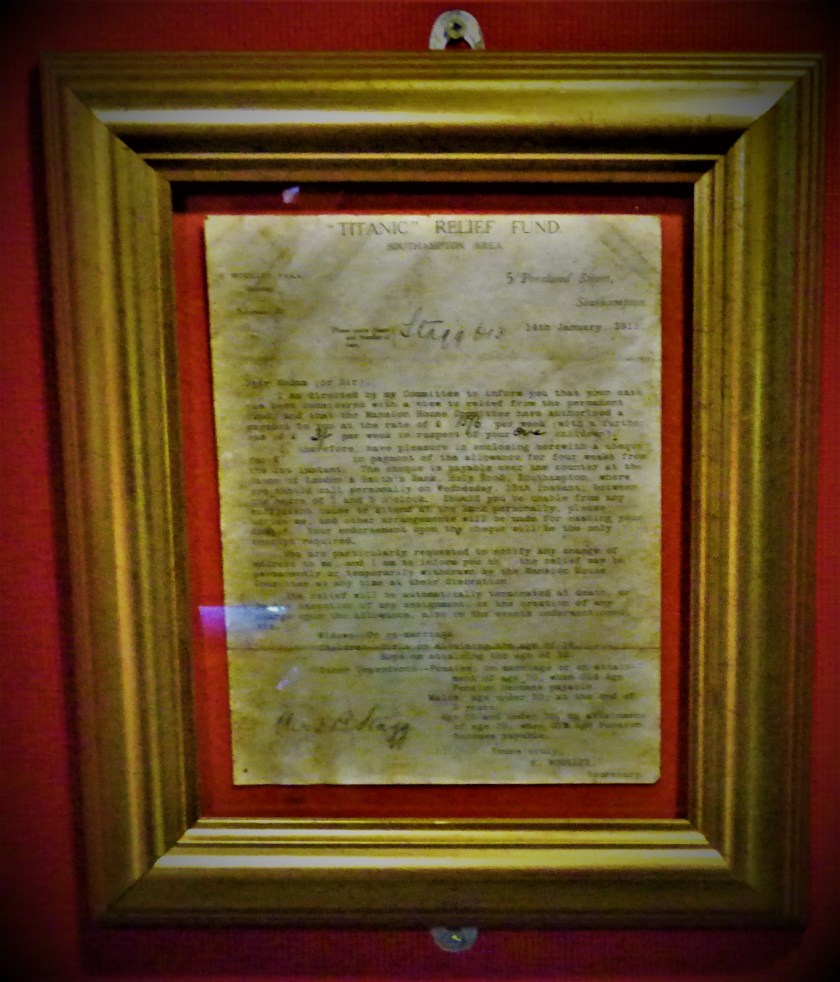 "TITANIC" RELIEF FUND.
SOUTHAMPTON AREA
5 Portland Street,
Southampton
Stagg 14th January,
Dear Madam (or Sir)
I am directed by my Committee to inform you that your case
has been considered with a view to relief from the permanent
fund, and that the Mansion House Committee have authorised a
payment to you at the rate of £ per week (with a further
sum of £ per week in respect of your one children).
therefore, have pleasure in enclosing herewith a cheque
for £ in payment of the allowance for four weeks from
the 1st instant. The cheque is payable over the counter at the
Bank, Southampton, where
you should call personally on Wednesday, 15th instant, between
the hours of 3 and 5 o'clock. Should you be unable from any
sufficient cause to attend at the Bank personally, please
me, and other arrangements will be made for cashing your
Your endorsement upon the cheque will be the only
receipt required.
You are particularly requested to notify any change of
address to me, and I am to inform you that the relief may be
permanently or temporarily withdrawn by the Mansion House
Committee at any time at their discretion.
The relief will be automatically terminated at death, or
on execution of any assignment, or the creation of any
charge upon the allowance, also on the events undermentioned,
Widows--On re-marriage
Children--Girls on attaining the age of
Boys on attaining the age of
Other Dependents--Females, on marriage or on attain-
ment of age 70, when Old Age
Pension becomes payable.
Males, age under at the end of
years.
Age and under 70, on attainment
of age 70, when Old Age Pension
becomes payable.
Stagg
Yours truly,
Secretary.